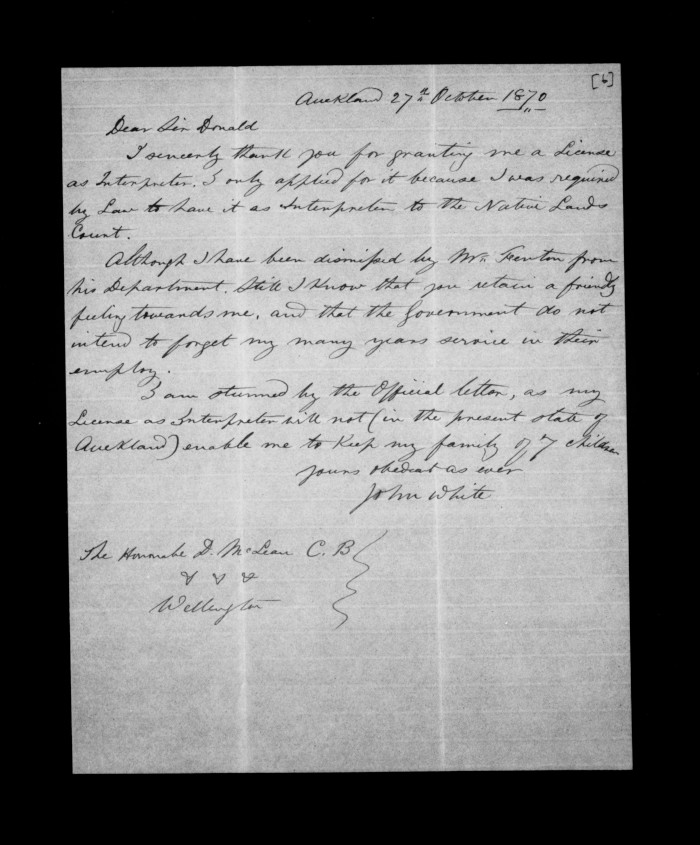 [6]
Auckland 27th October 1870
Dear Sir Donald
I sincerely thank you for granting me a License
as Interpreter. I only applied for it because I was required
by Law to have it as Interpreter to the Native Lands
Court.
Although I have been dismissed by Mr. Fenton from
his Department. Still I know that you retain a friendly
feeling towards me, and that the Government do not
intend to forget my many years service in their
employ.
I am stunned by the Official letter, as my
License as Interpreter will not (in the present state of
Auckland) enable me to Keep my family of 7 children
yours obedient as ever
John White
The Honorable D. McLean C. B
Wellington